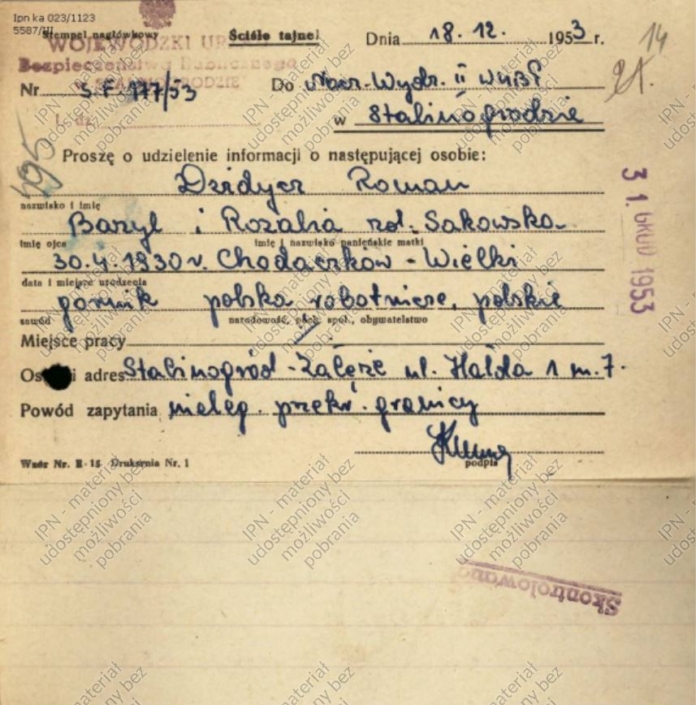 Ipn ka 023/1123
5587/III
Stempel nagłówkowy
Ściśle tajne!
Dnia 18. 12. 1953 r.
14
WOJEWÓDZKI UR
Bezpieczeństwa Publicznego
Nr S.F 177/53
Do Nacz. Wydz. II WUBP
w Stalinogrodzie
Proszę o udzielenie informacji o następującej osobie:
Dzidycz Roman
nazwisko i imię
Bazyl i Rozalia zd. Sakowska
imię ojca imię i nazwisko panieńskie matki
30.4.1930 r. Chodaczków-Wielki
data i miejsce urodzenia
górnik polska robotnicze, polskie
zawód narodowość, poch. społ., obywatelstwo
Miejsce pracy
adres Stalinogród-Załęże ul. Hałda 1 m. 7.
Powód zapytania nieleg. przekr. granicy
podpis
Wzór Nr. E-15 Drukarnia Nr. 1
31. GRUD 1953
Skontrolowano
IPN - materiał
udostępniony bez
możliwości
pobrania